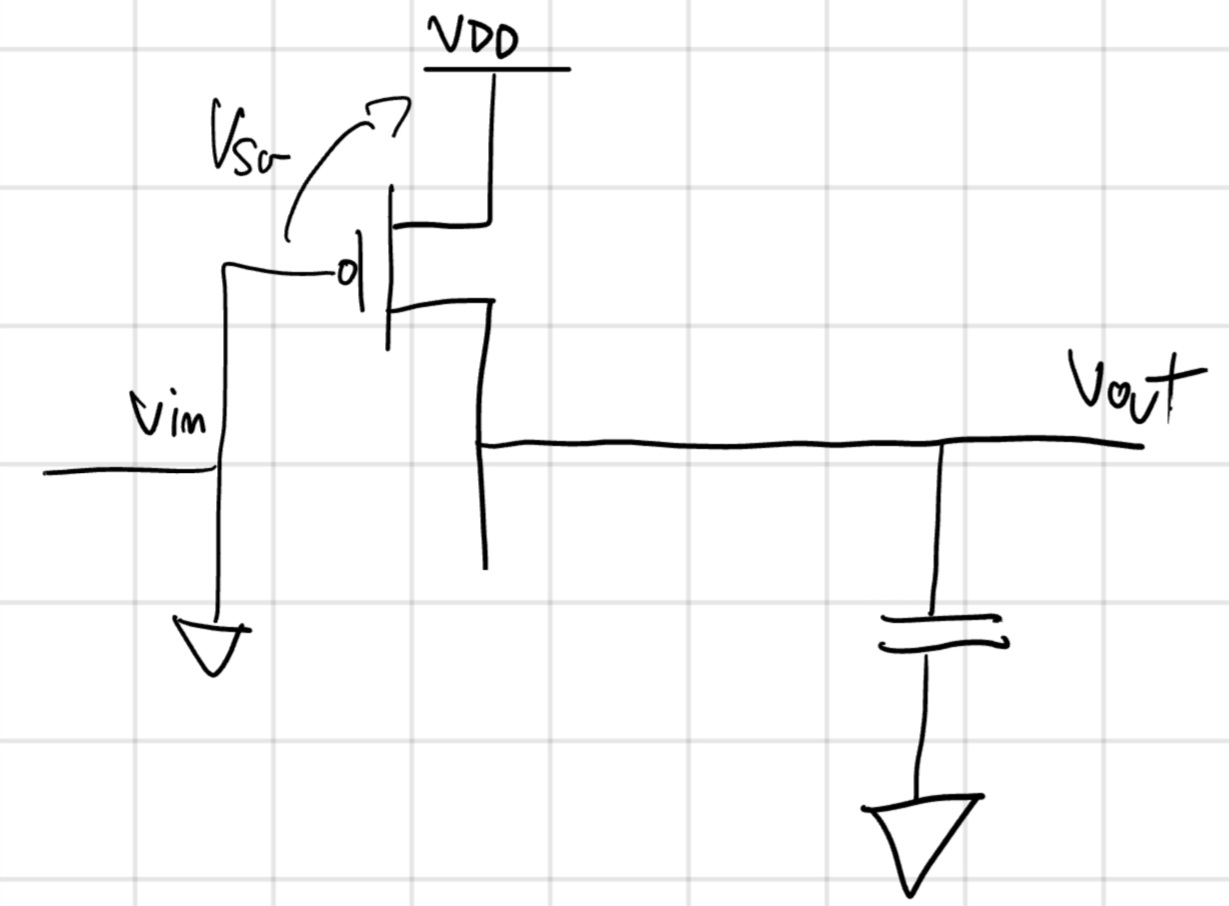 VDD
VSG
Vin
Vout